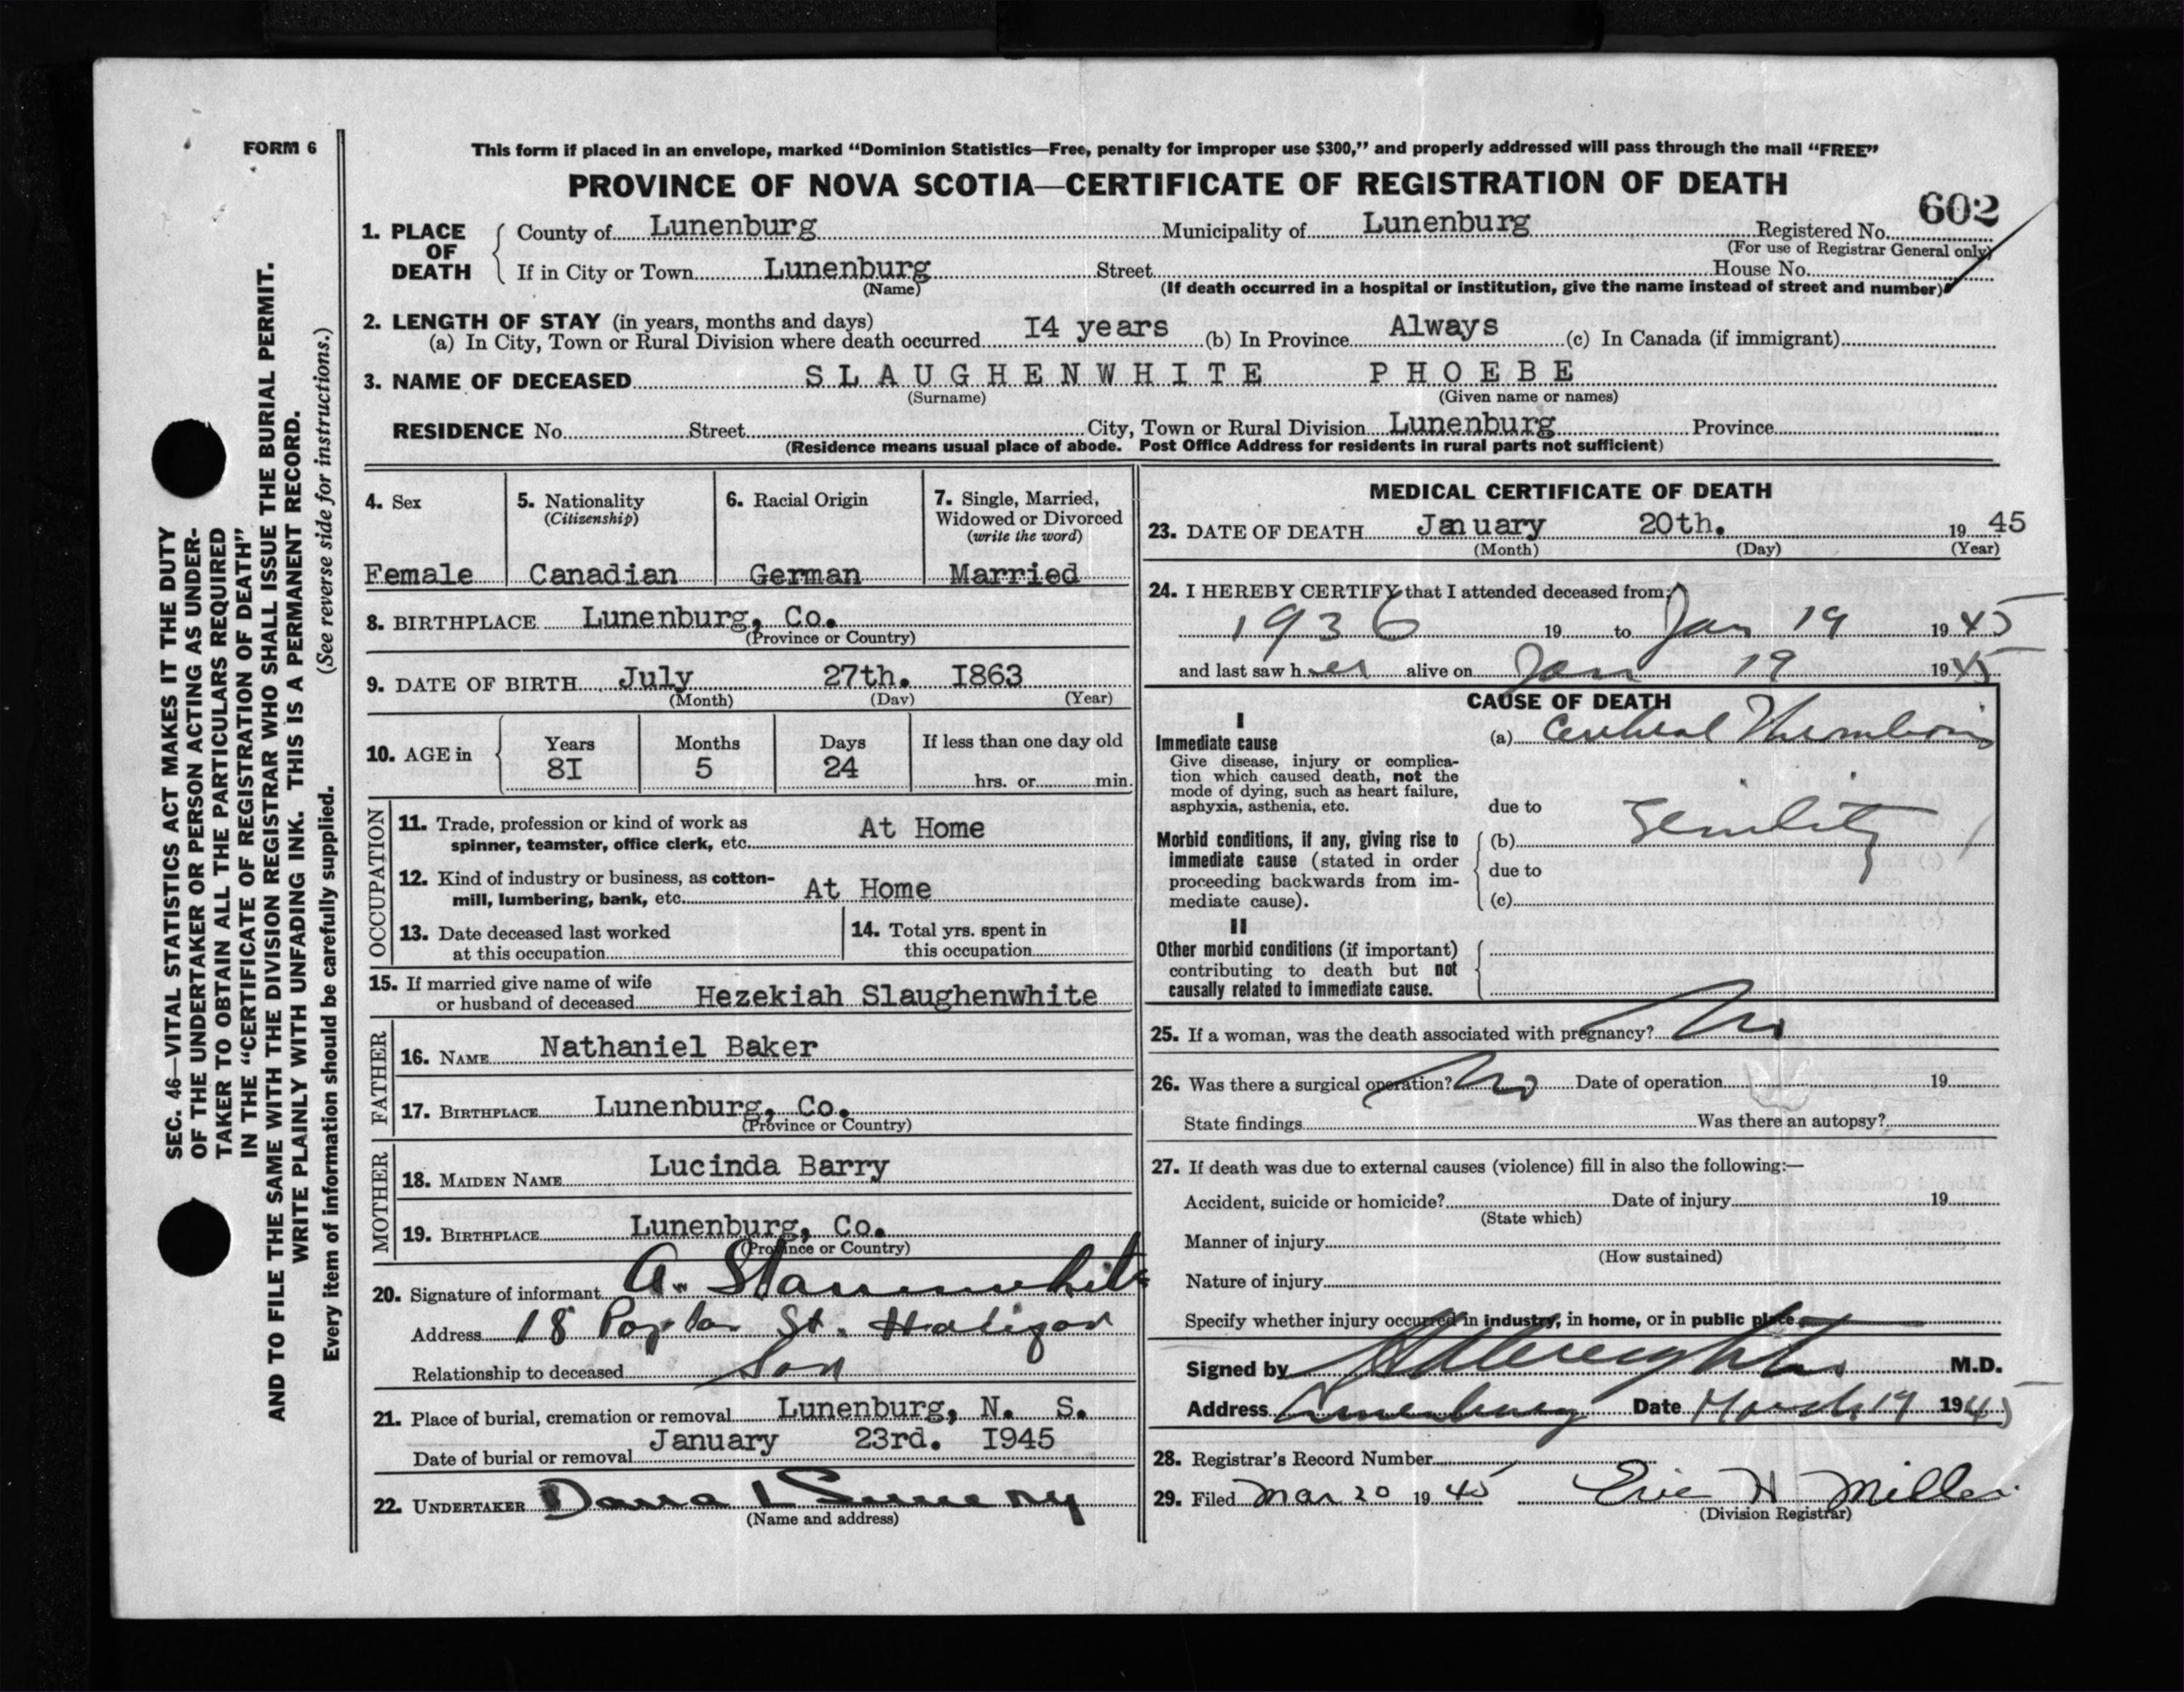 FORM 6
This form if placed in an envelope, marked “Dominion Statistics—Free, penalty for improper use $300,” and properly addressed will pass through the mail “FREE”
PROVINCE OF NOVA SCOTIA—CERTIFICATE OF REGISTRATION OF DEATH
602
1. PLACE OF DEATH { County of Lunenburg Municipality of Lunenburg Registered No.
(For use of Registrar General only)
If in City or Town Lunenburg Street House No.
(Name) (If death occurred in a hospital or institution, give the name instead of street and number)
2. LENGTH OF STAY (in years, months and days)
(a) In City, Town or Rural Division where death occurred I4 years (b) In Province Always (c) In Canada (if immigrant)
3. NAME OF DECEASED SLAUGHENWHITE PHOEBE
(Surname) (Given name or names)
RESIDENCE No. Street City, Town or Rural Division Lunenburg Province
(Residence means usual place of abode. Post Office Address for residents in rural parts not sufficient)
4. Sex
Female
5. Nationality
(Citizenship)
Canadian
6. Racial Origin
German
7. Single, Married,
Widowed or Divorced
(write the word)
Married
8. BIRTHPLACE Lunenburg, Co.
(Province or Country)
9. DATE OF BIRTH July 27th. I863
(Month) (Day) (Year)
10. AGE in { Years Months Days If less than one day old
8I 5 24 hrs. or min.
OCCUPATION
11. Trade, profession or kind of work as
spinner, teamster, office clerk, etc. At Home
12. Kind of industry or business, as cotton-
mill, lumbering, bank, etc. At Home
13. Date deceased last worked
at this occupation
14. Total yrs. spent in
this occupation
15. If married give name of wife
or husband of deceased Hezekiah Slaughenwhite
FATHER
16. NAME Nathaniel Baker
17. BIRTHPLACE Lunenburg, Co.
(Province or Country)
MOTHER
18. MAIDEN NAME Lucinda Barry
19. BIRTHPLACE Lunenburg, Co.
(Province or Country)
20. Signature of informant A.
Address 18 Poplar St. Halifax
Relationship to deceased Son
21. Place of burial, cremation or removal Lunenburg, N. S.
Date of burial or removal January 23rd. I945
22. UNDERTAKER
(Name and address)
MEDICAL CERTIFICATE OF DEATH
23. DATE OF DEATH January 20th. 19 45
(Month) (Day) (Year)
24. I HEREBY CERTIFY that I attended deceased from:
1936 19 to Jan 19 19 45
and last saw h er alive on Jan 19 19 45
CAUSE OF DEATH
I
Immediate cause
Give disease, injury or complica-
tion which caused death, not the
mode of dying, such as heart failure,
asphyxia, asthenia, etc.
(a) Cerebral Thrombosis
due to
Morbid conditions, if any, giving rise to
immediate cause (stated in order
proceeding backwards from im-
mediate cause).
(b) Senility
due to
(c)
II
Other morbid conditions (if important)
contributing to death but not
causally related to immediate cause.
25. If a woman, was the death associated with pregnancy? No
26. Was there a surgical operation? No Date of operation 19
State findings Was there an autopsy?
27. If death was due to external causes (violence) fill in also the following:—
Accident, suicide or homicide? Date of injury 19
(State which)
Manner of injury
(How sustained)
Nature of injury
Specify whether injury occurred in industry, in home, or in public place
Signed by M.D.
Address Lunenburg Date March 19 1945
28. Registrar's Record Number
29. Filed Mar 20 19 45 Eric H Miller
(Division Registrar)
SEC. 46—VITAL STATISTICS ACT MAKES IT THE DUTY
OF THE UNDERTAKER OR PERSON ACTING AS UNDER-
TAKER TO OBTAIN ALL THE PARTICULARS REQUIRED
IN THE “CERTIFICATE OF REGISTRATION OF DEATH”
AND TO FILE THE SAME WITH THE DIVISION REGISTRAR WHO SHALL ISSUE THE BURIAL PERMIT.
WRITE PLAINLY WITH UNFADING INK. THIS IS A PERMANENT RECORD.
Every item of information should be carefully supplied. (See reverse side for instructions.)